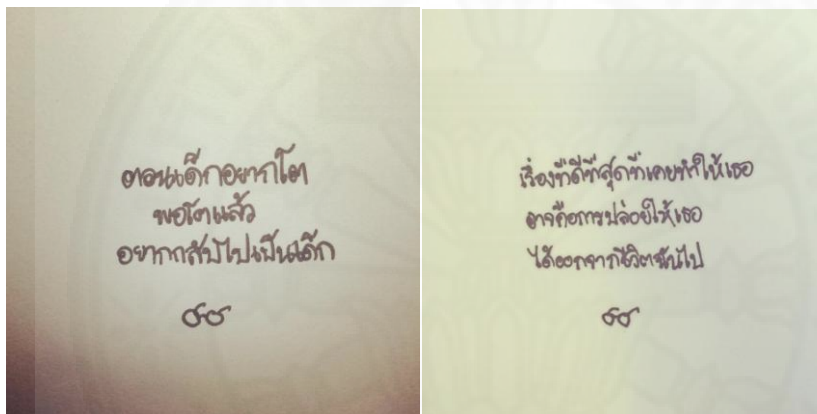 ตอนเด็กอยากโต
พอโตแล้ว
อยากกลับไปเป็นเด็ก
ธธ
เรื่องที่ดีที่สุดที่เคยทำให้เธอ
อาจคือการปล่อยให้เธอ
ได้ออกจากชีวิตฉันไป
ธธ